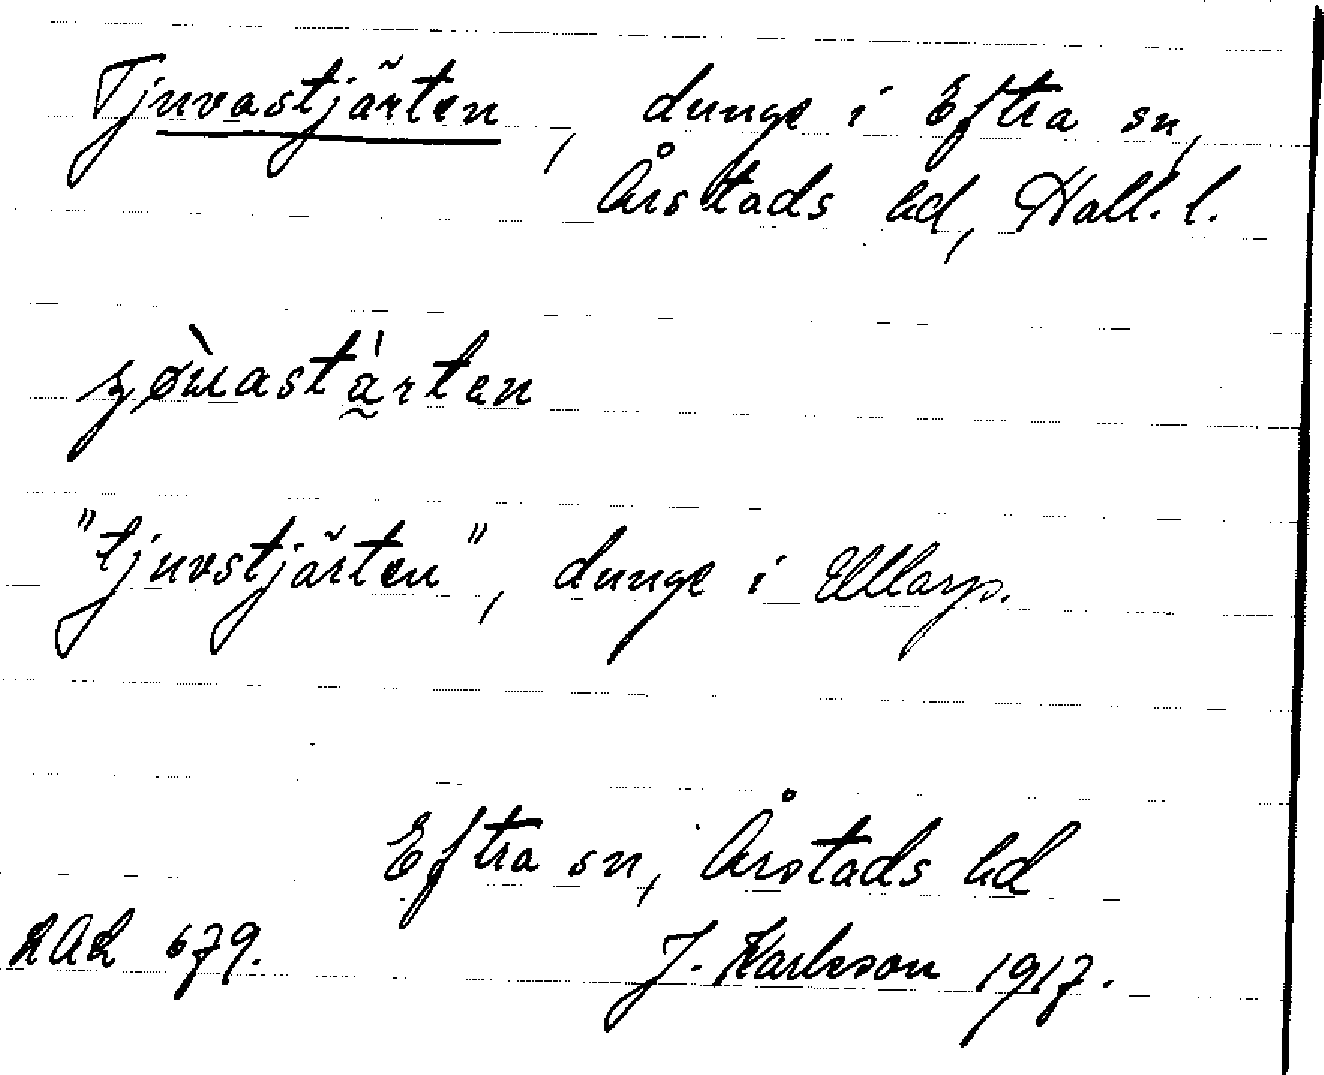 Tjuvastjärten, dunge i Eftra sn,
Årstads hd, Hall. l.
"tjuvstjärten", dunge i Ullarp.
Eftra sn, Årstads hd
679. J. Karlsson 1917.